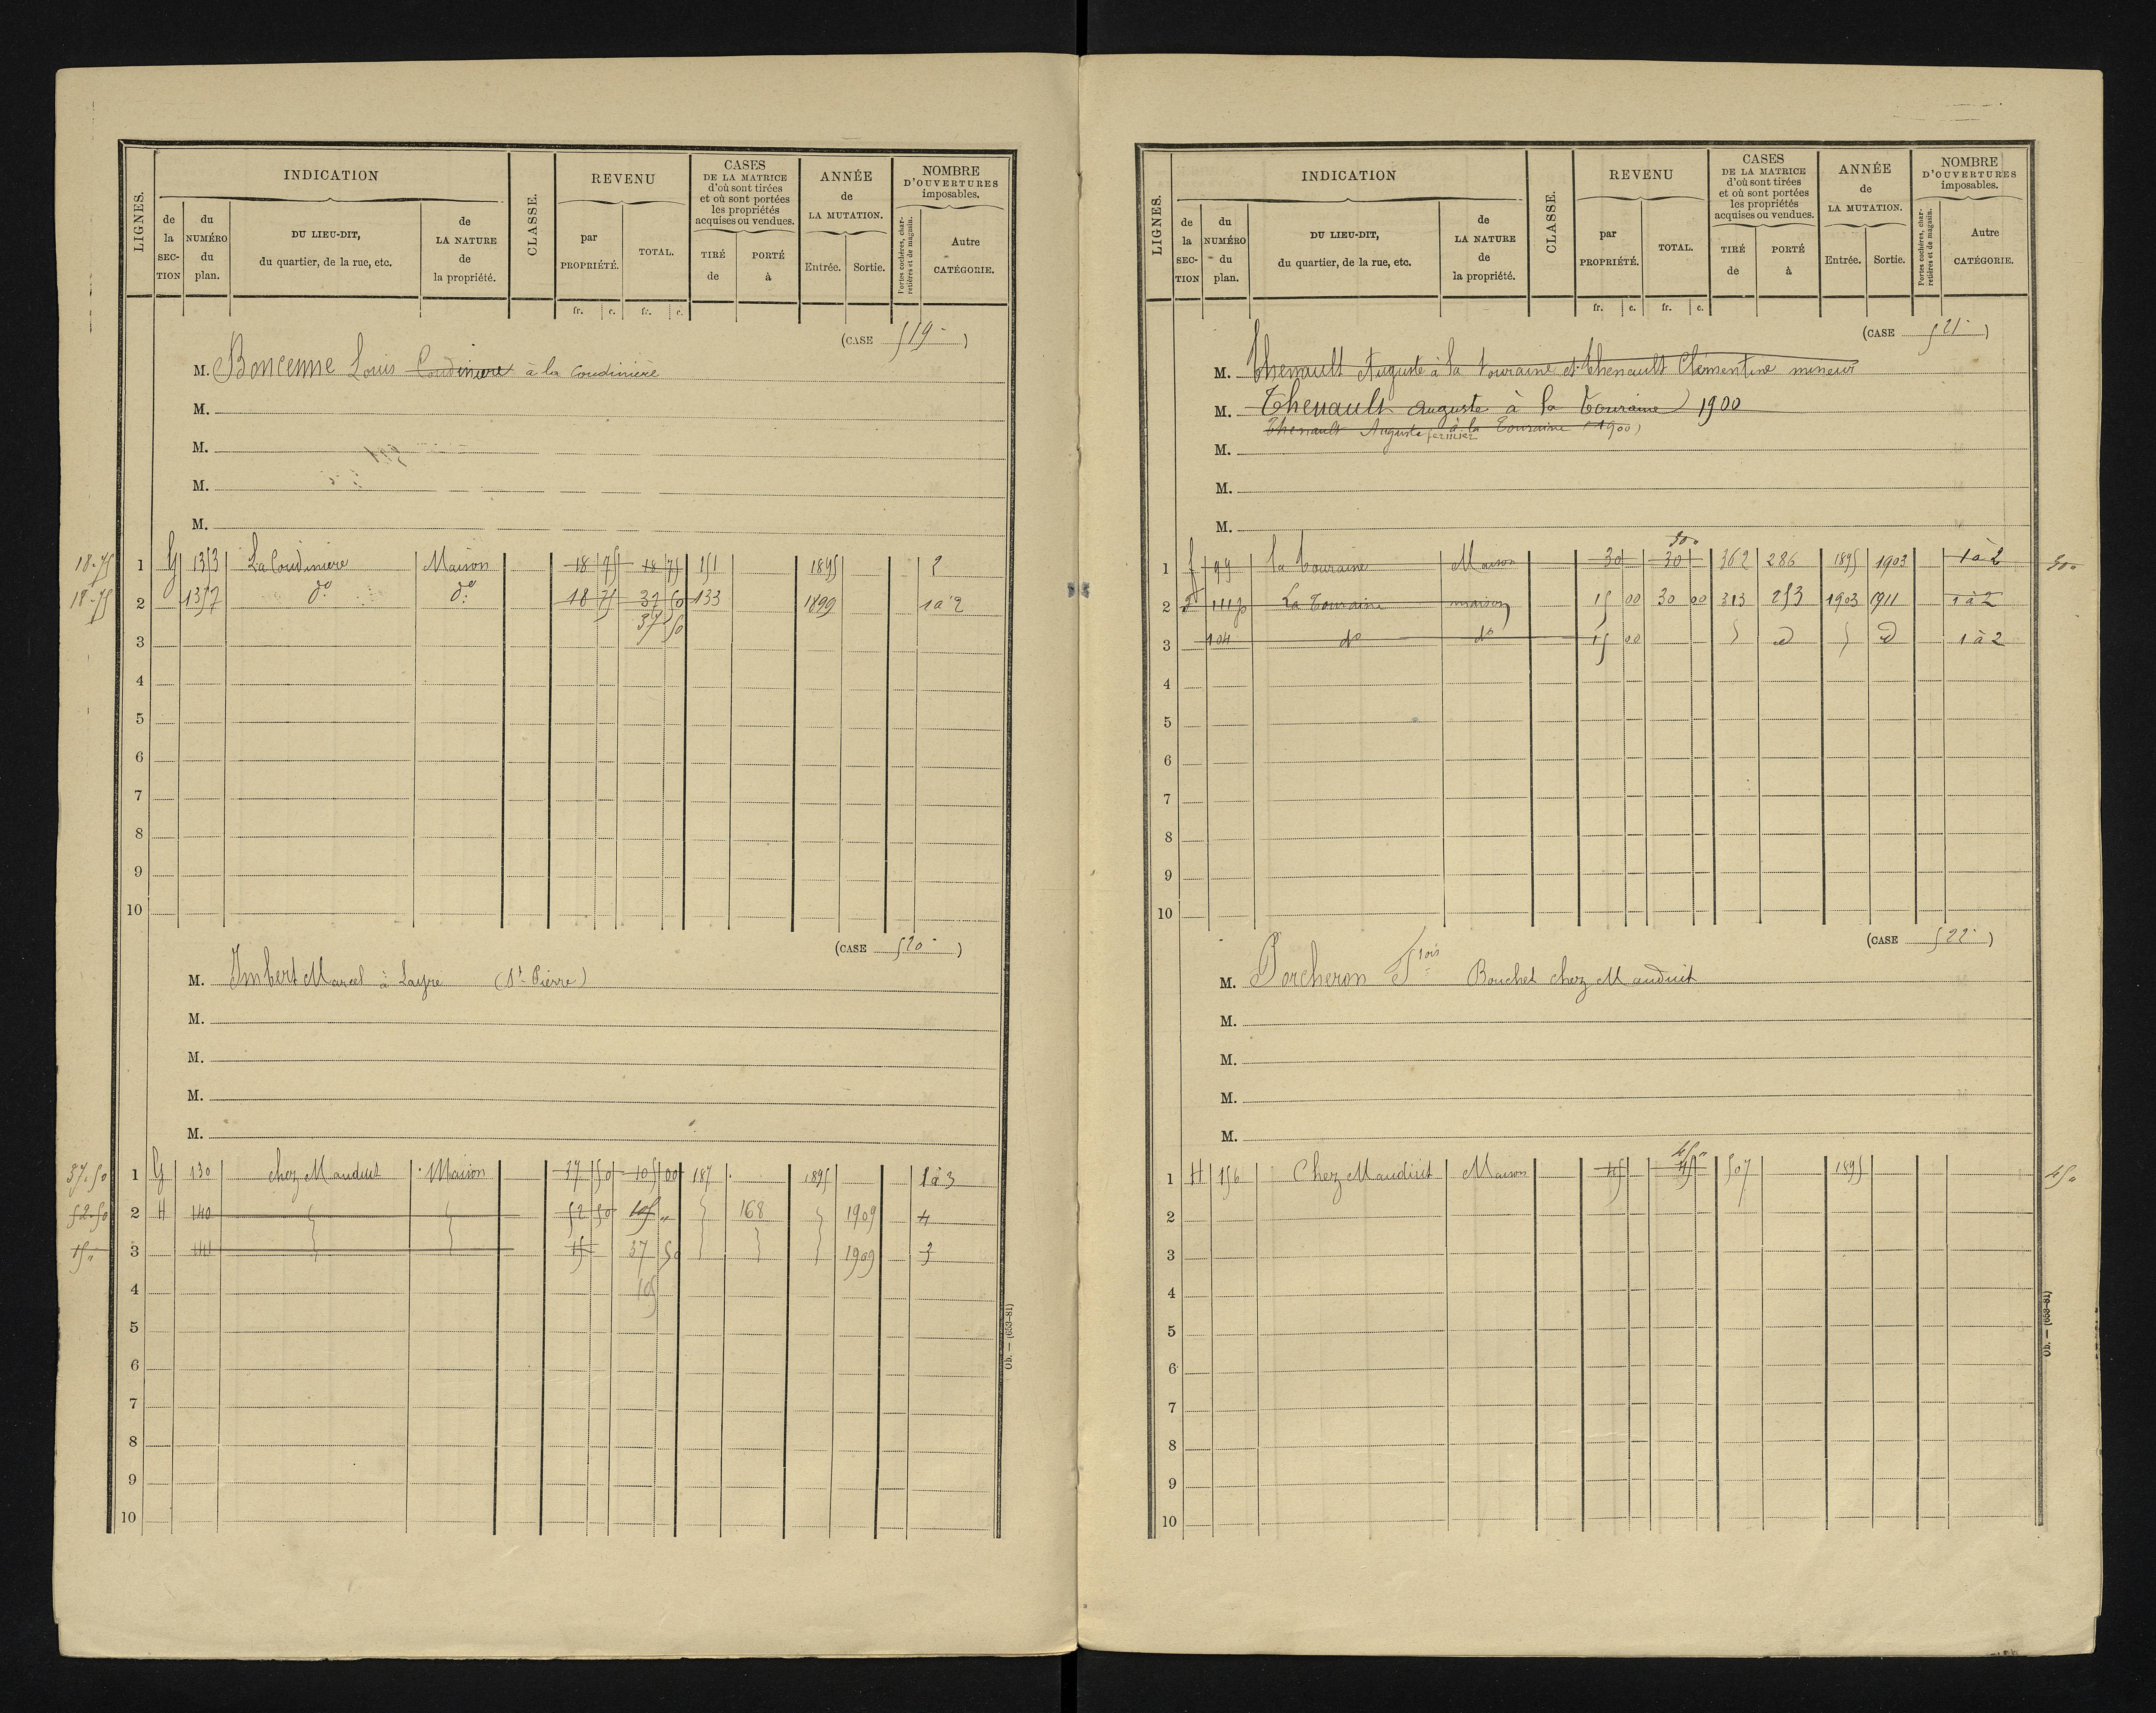 LIGNES.
INDICATION
de la SECTION
du NUMÉRO du plan.
DU LIEU-DIT, du quartier, de la rue, etc.
de LA NATURE de la propriété.
CLASSE.
REVENU
par PROPRIÉTÉ.
TOTAL.
CASES DE LA MATRICE d'où sont tirées et où sont portées les propriétés acquises ou vendues.
TIRÉ de
PORTÉ à
ANNÉE de LA MUTATION.
Entrée.
Sortie.
NOMBRE D'OUVERTURES imposables.
Portes cochères, charretières et de magasin.
Autre CATÉGORIE.
fr. c. fr. c.
(CASE 519)
M. Boncenne Louis Coudiniere à la Coudinière
M.
M.
M.
M.
18.75 1 G 1353 La Coudiniere Maison 18 75 18 75 151 1895 2
18.75 2 1357 do do 18 75 37 50 133 1899 1 à 2
37 50
3
4
5
6
7
8
9
10
(CASE 520)
M. Imbert Marcel à Layre (St Pierre)
M.
M.
M.
M.
37.50 1 G 130 chez Mauduit Maison 37 50 105 00 187 1895 1 à 3
52.50 2 H 140 52 50 105 " 168 1909 4
15 " 3 141 15 37 50 1909 3
4 105
5
6
7
8
9
10
Ob. — (653-81)
LIGNES.
INDICATION
de la SECTION
du NUMÉRO du plan.
DU LIEU-DIT, du quartier, de la rue, etc.
de LA NATURE de la propriété.
CLASSE.
REVENU
par PROPRIÉTÉ.
TOTAL.
CASES DE LA MATRICE d'où sont tirées et où sont portées les propriétés acquises ou vendues.
TIRÉ de
PORTÉ à
ANNÉE de LA MUTATION.
Entrée.
Sortie.
NOMBRE D'OUVERTURES imposables.
Portes cochères, charretières et de magasin.
Autre CATÉGORIE.
fr. c. fr. c.
(CASE 521)
M. Thenault Auguste à la Touraine et Thenault Clémentine mineur
M. Thenault Auguste à la Touraine 1900
Thenault Auguste fermier à la Touraine (1900)
M.
M.
M.
1 99 la Touraine Maison 30 30 362 286 1895 1903 1 à 2
2 111p La Touraine maison 15 00 30 00 313 253 1903 1911 1 à 2
3 104 do do 15 00 1 à 2
4
5
6
7
8
9
10
(CASE 522)
M. Porcheron Fçois Bouchet chez Mauduit
M.
M.
M.
M.
1 H 156 Chez Mauduit Maison 45 45 507 1895 45 "
2
3
4
5
6
7
8
9
10
Ob. — (653-81)